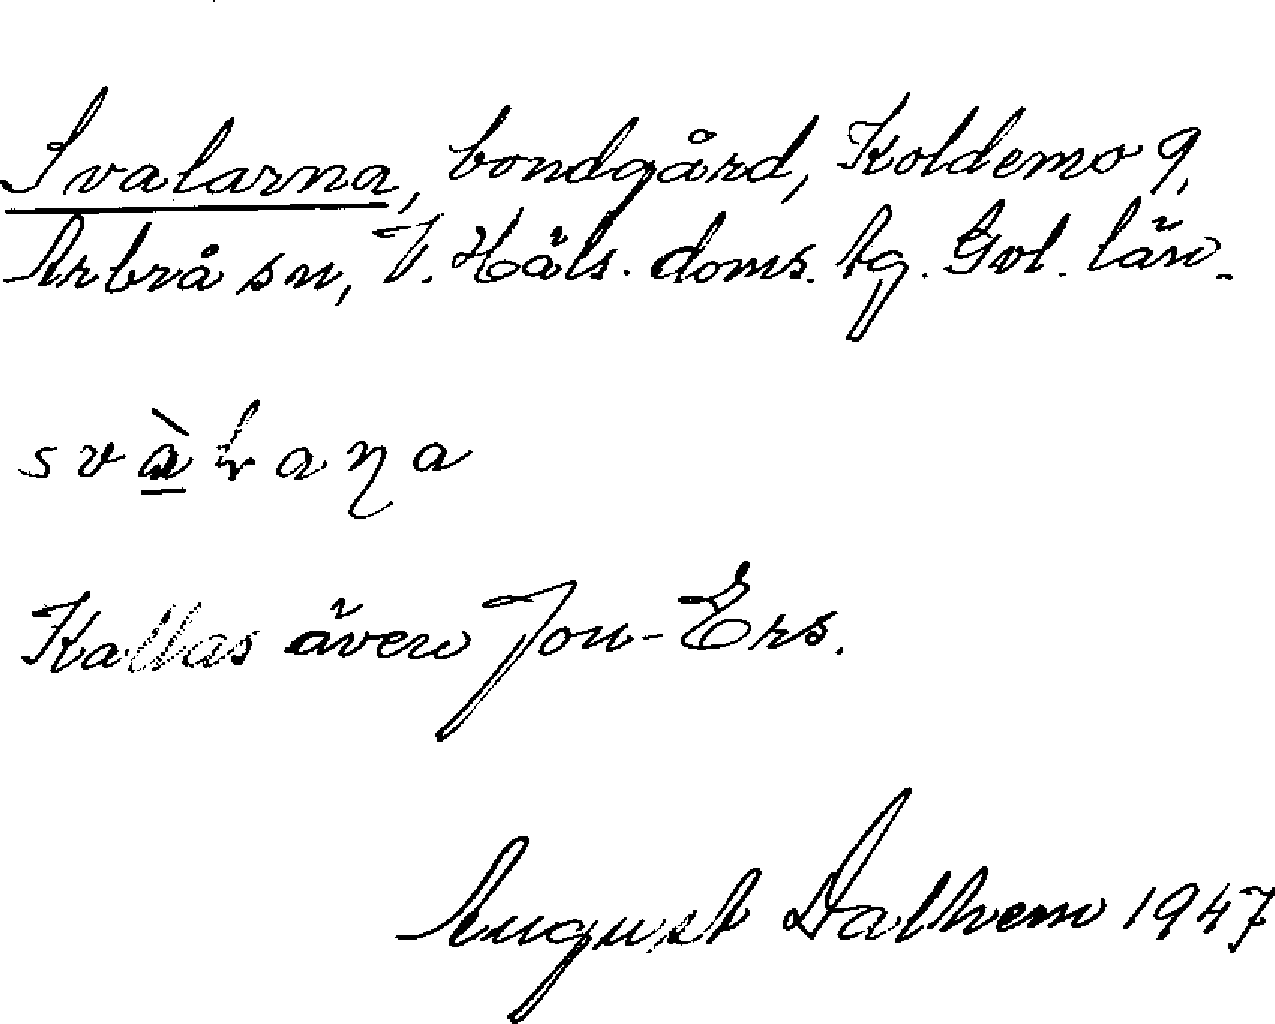 Svalarna, bondgård, Koldemo 9,
Arbrå sn, V. Häls. doms. tg. Gvl. län.
Kallas även Jon-Ers.
August Dalhem 1947